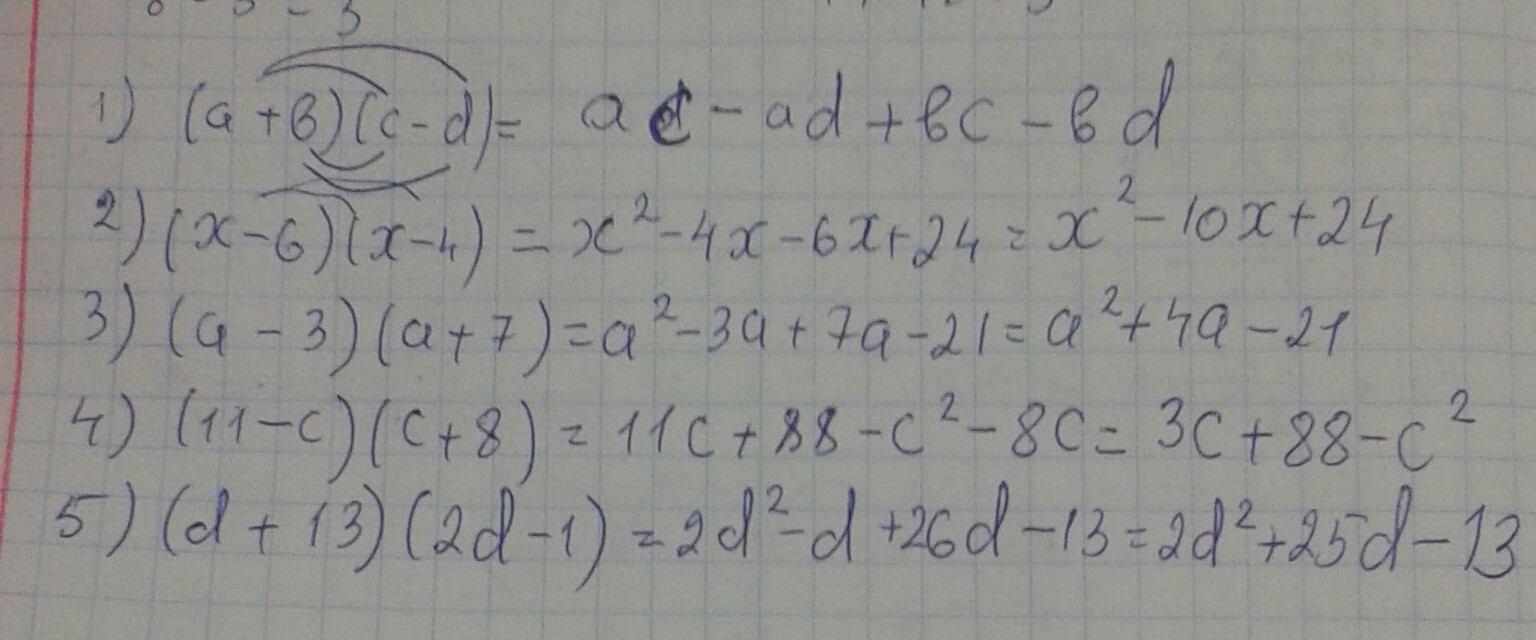 1) (a+b)(c-d)= ac-ad+bc-bd
2) (x-6)(x-4)=x²-4x-6x+24=x²-10x+24
3) (a-3)(a+7)=a²-3a+7a-21=a²+4a-21
4) (11-c)(c+8)=11c+88-c²-8c=3c+88-c²
5) (d+13)(2d-1)=2d²-d+26d-13=2d²+25d-13